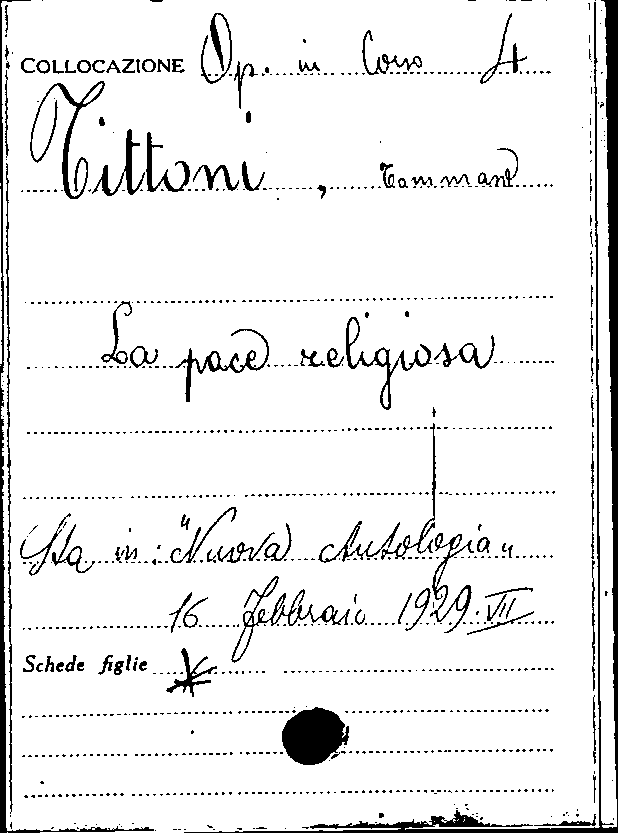 COLLOCAZIONE Op. in Corso 4
Tittoni, Tommaso
La pace religiosa
Sta in: "Nuova Antologia"
16 Febbraio 1929. VII
Schede figlie